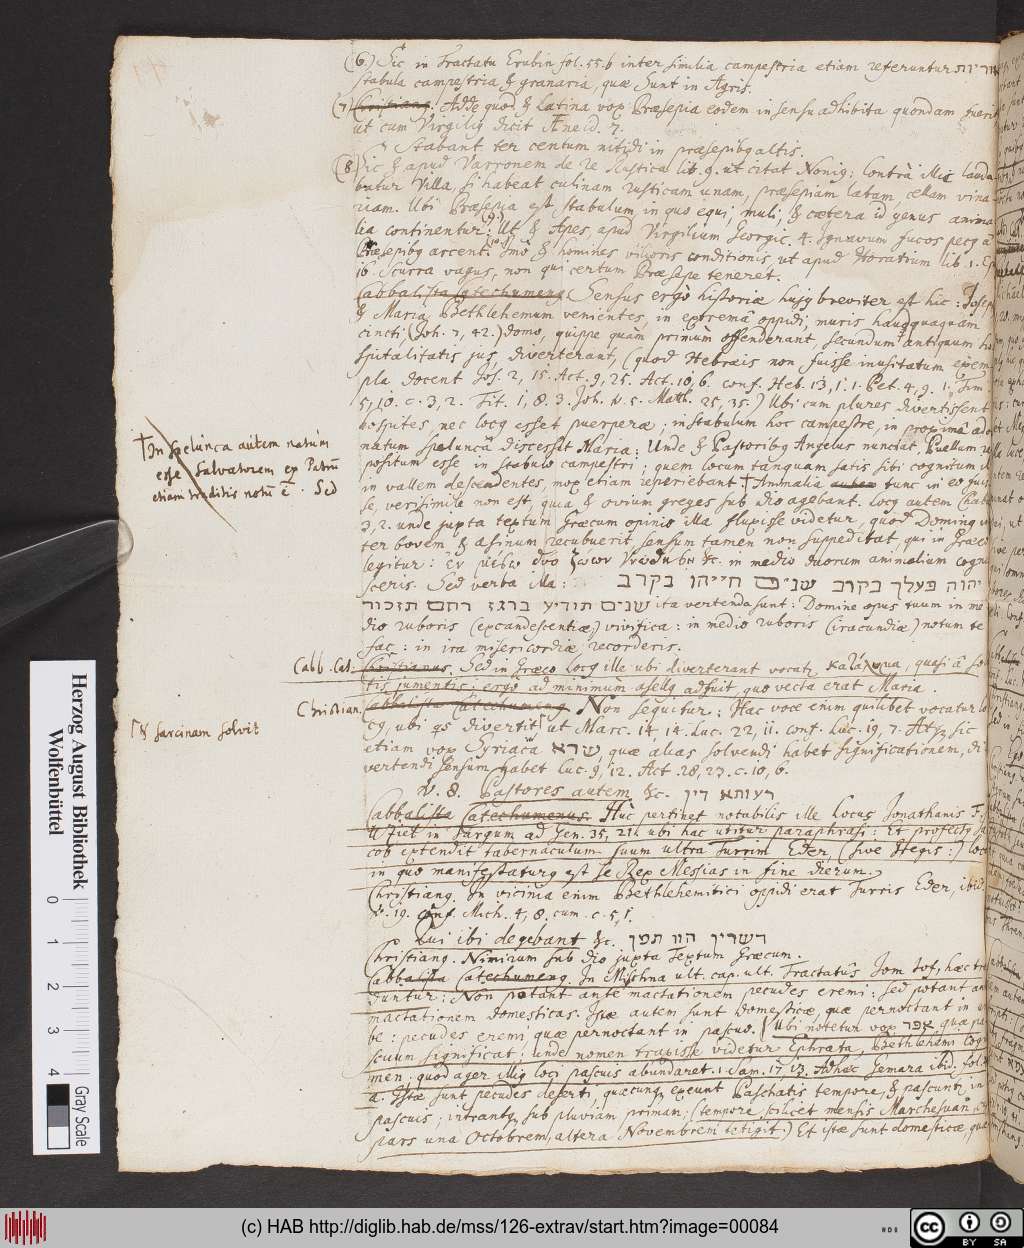 (6.) Sic in Tractatu Erubin fol. 55. b inter similia campestria etiam referuntur אוריות
stabula campestria & granaria, quæ sunt in Agris.
(7) Christiang. Addo quod & Latina vox Præsepia eodem in sensu adhibita quondam fuerit
ut cum Virgilig dicit Æneid. 7.
Stabant ter centum nitidi in præsepibg altis.
(8.) Sic & apud Varronem de re Rustica lib. 9. ut citat Nonig: Contrà illic lauda
batur Villa, si habeat culinam rusticam unam, præsepiam latam, cellam vina
riam. Ubi Præsepia est stabulum, in quo equi, muli, & cætera id genus anima
lia continentur: (9) Ut & Apes, apud Virgilium Georgic. 4. Ignavum fucos pecg à
Præsepibg arcent. Imò & homines vilioris conditionis, ut apud Horatium lib. 1. Ep
ib. Scurra vagus, non qui certum Præsepe teneret.
Cabbalista Catechumeng. Sensus ergò historiæ hujg breviter est hic: Joseph
& Maria Bethlehemum venientes, in extremâ oppidi, muris haudquaquam
cincti, (Joh. 7, 42.) domo, quippe quàm primùm offenderant, secundum antiquum ho
spitalitatis jus, diverterant, (quod Hebræis non fuisse inusitatum exem
pla docent Jos. 2, 15. Act. 9, 25. Act. 10, 6. conf. Heb. 13, 1. 1. Pet. 4, 9. 1. Tim
5, 10. c. 3, 2. Tit. 1, 8. 3. Joh. v. 5. Math. 25, 35.) Ubi cum plures divertissent
hospites, nec locg esset puerperæ; in stabulum hoc campestre, in proximâ ado
natum speluncâ discessit Maria: Unde & Pastoribg Angelus nunciat, Puellum re
positum esse in stabulo campestri; quem locum tanquam satis sibi cognitum il
in vallem descendentes, mox etiam reperiebant. † Animalia autem tunc in eo fuis
se, verisimile non est, quia & ovium greges sub dio agebant. locg autem Chab
3, 2. unde juxta textum Græcum opinio illa fluxisse videtur, quod Doming in
ter bovem & asinum recubuerit, sensum tamen non suppeditat, qui in Græco
legitur: Ἐν μέσῳ δύο ζώων γνωσθήση &c. in medio duorum animalium cogno
sceris. Sed verba illa: יהוה פעלך בקרב שנים חייהו בקרב
שנים תודיע ברגז רחם תזכור ita vertenda sunt: Domine opus tuum in me
dio ruboris (excandescentiæ) vivifica: in medio ruboris (iracundiæ) notum te
fac: in ira misericordiæ, recorderis.
Cabb. Cat: Christianus. Sed in Græco locg ille ubi diverterant vocatr κατάλυμα, quasi à so
tis jumentis: ergo ad minimùm asellg adfuit, quo vecta erat Maria.
Christian. Cabbalista Catechumeng. Non sequitur: Hac voce enim quilibet vocatur lo
cg, ubi qs divertit, ut Marc. 14, 14. Luc. 22, 11. conf. Luc. 19, 7. Atq sic
etiam vox Syriaca שרא, quæ alias solvendi habet significationem, di
vertendi sensum habet Luc. 9, 12. Act. 28, 23. c. 10, 6.
V. 8. Pastores autem &c. רעותא דין
Cabbalista Catechumenus. Hùc pertinet notabilis ille locus Jonathanis F.
Uziel in Targum ad Gen. 35, 21. ubi hac utitur paraphrasi: Et profectg Ja
cob extendit tabernaculum suum ultra Turrim Eder, (sive Gregis:) loc
in quo manifestaturg est se Rex Messias in fine dierum.
Christiang. In vicinia enim Bethlehemitici oppidi erat Turris Eder, ibid.
v. 19. conf. Mich. 4, 8. cum. c. 5, 1.
Qui ibi degebant &c. דשרין הוו תמן
Christiang. Nimirum sub dio juxta Textum Græcum.
Cabbalista Catechumeng. In Mischna ult. cap. ult. Tractatûs Jom tof, hæc tra
duntur: Non potant ante mactationem pecudes eremi: sed potant an
mactationem domesticas. Ipsæ autem sunt Domesticæ, quæ pernoctant in ur
be: pecudes eremi quæ pernoctant in pascuo. (Ubi notetur vox אפר quæ pa
scuum significat; unde nomen traxisse videtur Ephrata, Bethlehemi cogno
men: quod ager illig loci pascuis abundaret. 1. Sam. 17, 13. Adhæc Gemara ibid. fol.
a. Istæ sunt pecudes deserti, quæcunq exeunt Paschatis tempore, & pascuntr in
pascuis; intrantq sub pluviam primam; (tempore scilicet mensis Marchesuan
pars una Octobrem, altera Novembrem tetigit.) Et istæ sunt domesticæ, quæ
† In spelunca autem natum
esse salvatorem ex Patrum
etiam traditis notum ē. Sed
& sarcinam solvit
Herzog August Bibliothek
Wolfenbüttel
0 1 2 3 4 Gray Scale
(c) HAB http://diglib.hab.de/mss/126-extrav/start.htm?image=00084
cc BY SA